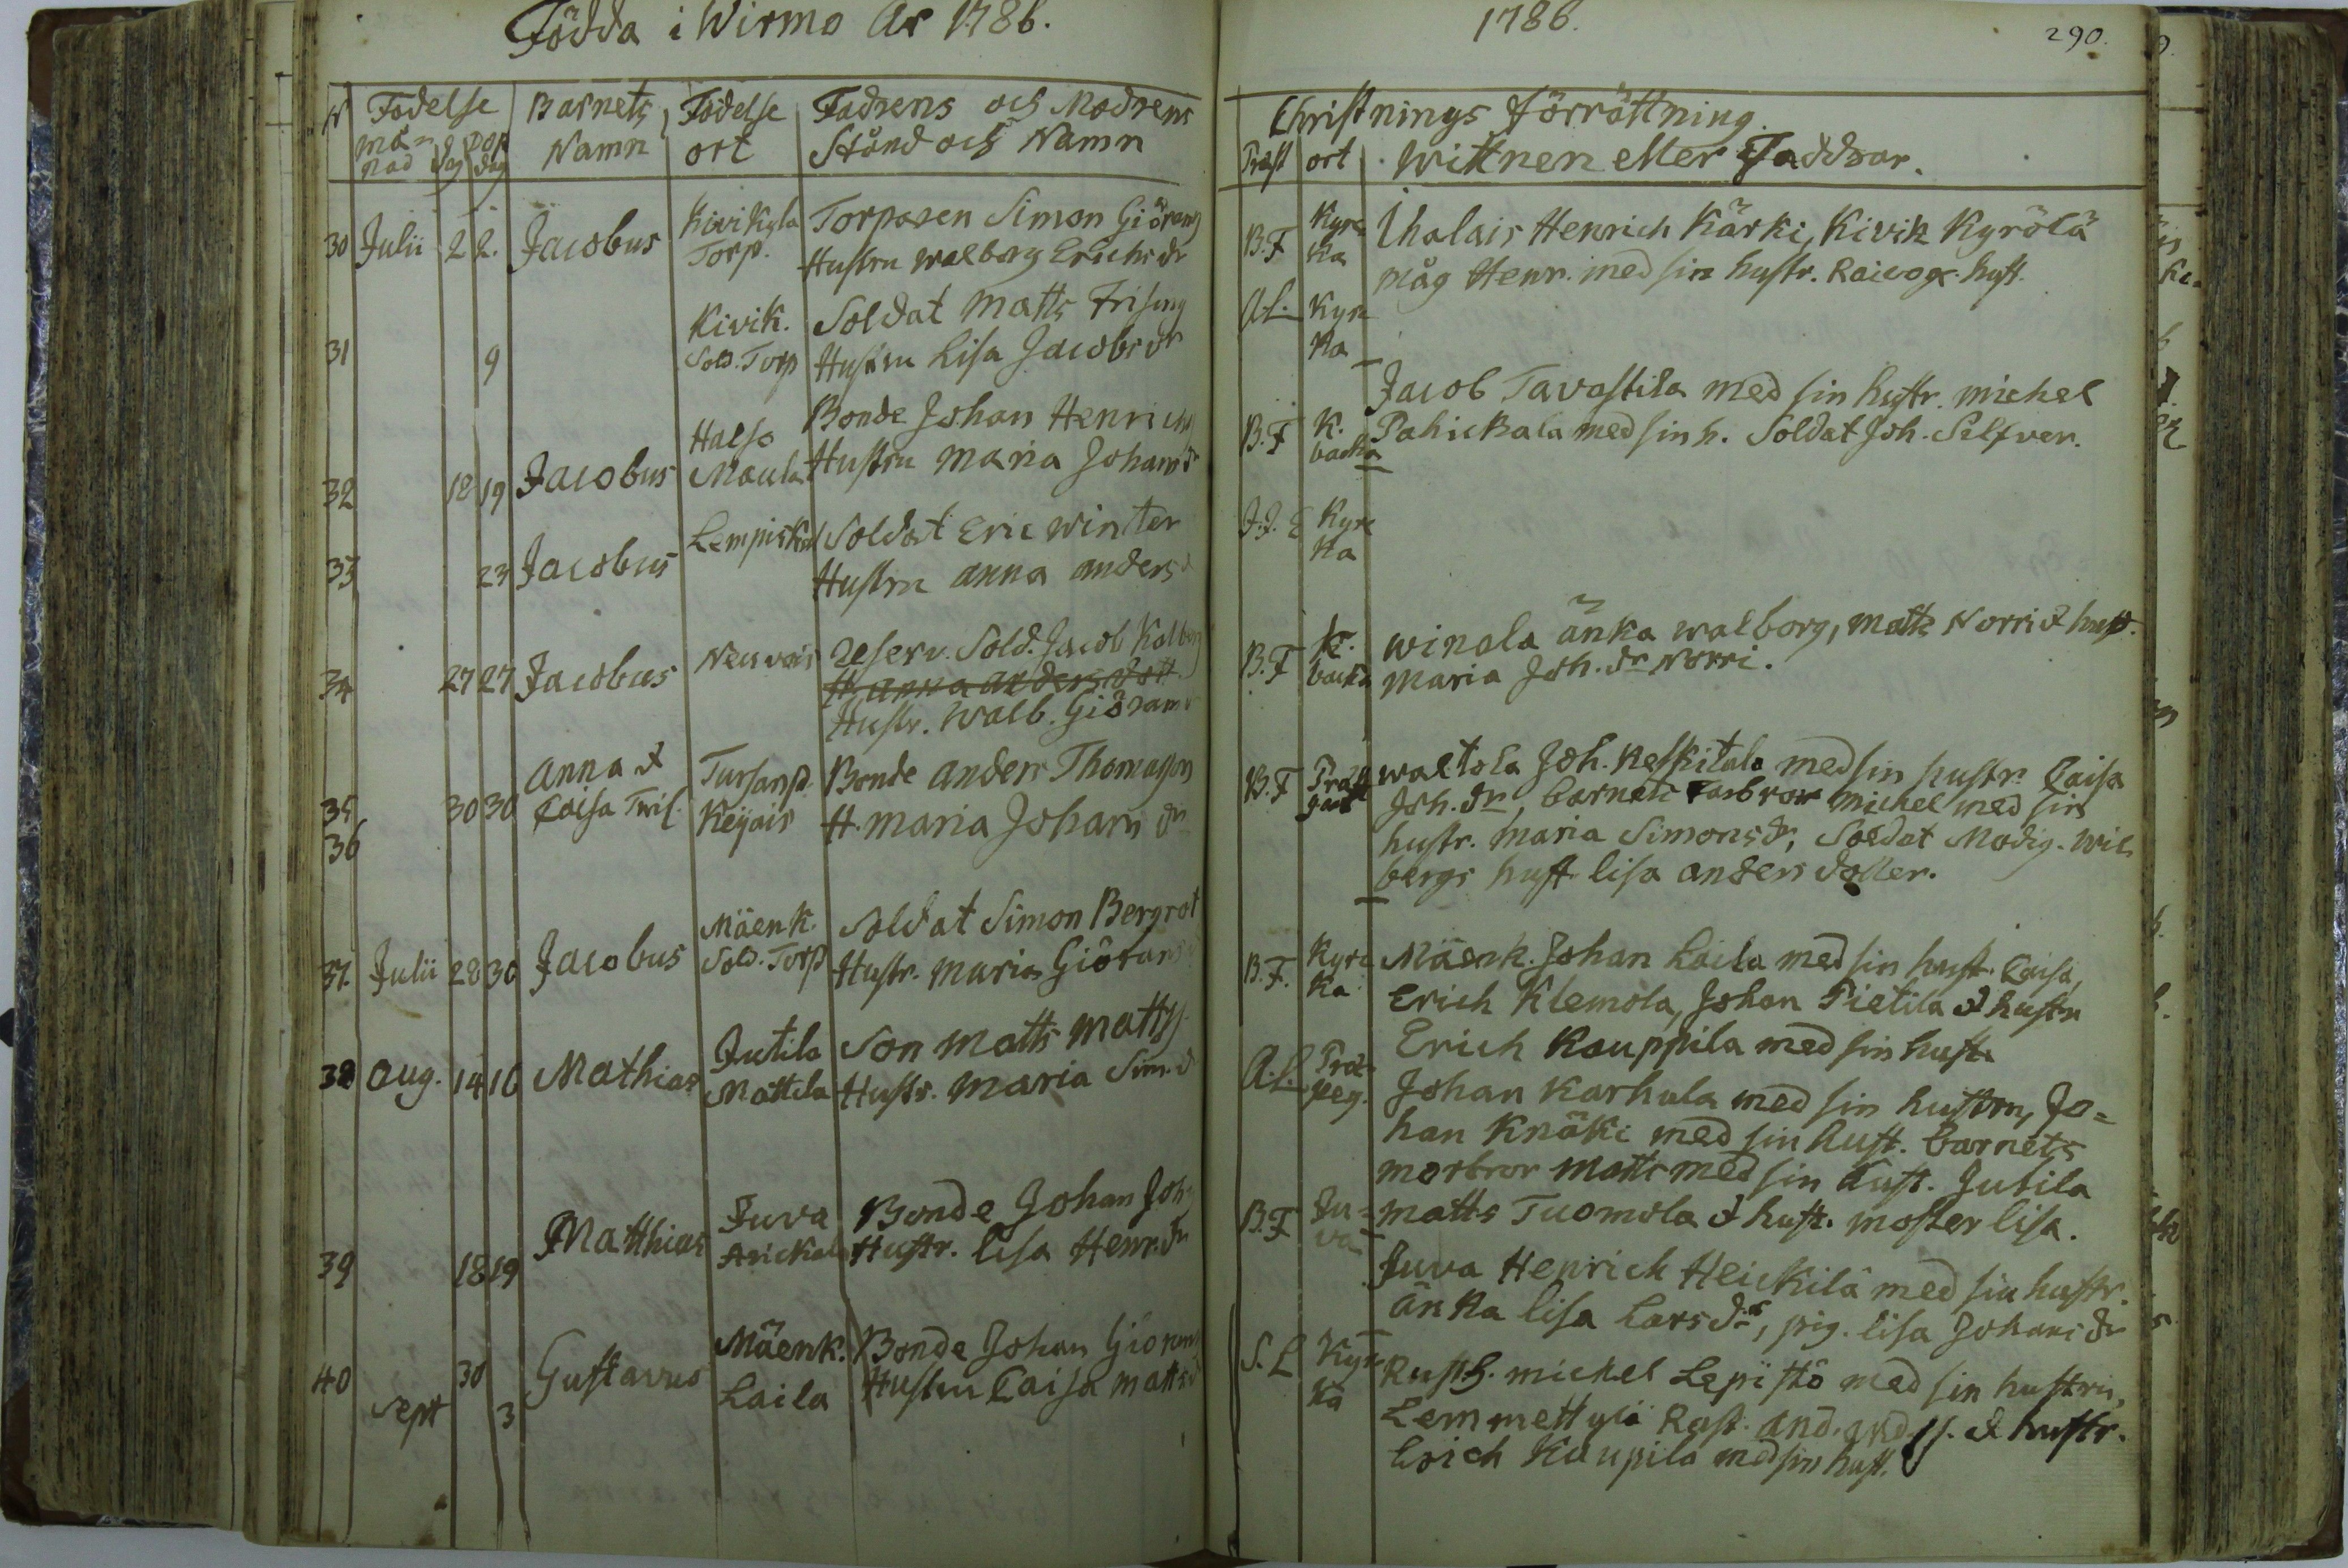 Födda i Wirmo År 1786.
N Födelse Barnets Födelse Fadrens och Modrens
må= nad dag Dop dag Namn ort Stånd och Namn
30 Julii 2 2. Jacobus Kivikyla Torparen Simon Giörans
Torp. Hustru Walborg Erichs dr
31 9 Kivik. Soldat Matts Frisung
Sold. Torp Hustru Lisa Jacobs dr
32 18 19 Jacobus Halso Bonde Johan Henrichs
Maula Hustru Maria Johans dr
33 23 Jacobus Soldat Eric Winter
Hustru Anna Anders
34 27 27 Jacobus Neuvois Reserv. Sold. Jacob
H. Anna Anders dott
Hustr. Walb. Giörans
35 30 30 Anna & Tursanp. Bonde Anders Thomasson
36 Caisa Twil. Keijois H. Maria Johans dr
37. Julii 28 30 Jacobus Mäenk. Soldat Simon Bergrot
Sold. Torp Hustr. Maria Giörans
38 Aug. 14 16 Mathias Jutila Son Matts Matts
Mattila Hustr. Maria Sim. d
39 18 19 Matthias Juva Bonde Johan Joh
Hustr. Lisa Henr. dr
40 30 Gustavus Mäenk. Bonde Johan Giorans
Sept 3 Laila Hustru Caisa Matts d
1786.
290.
Christnings Förrättning.
Präst ort Wittnen eller Faddrar.
B.F Kyrc Ihalais Henrich Kärki, Kivik Kyrölä
ka måg Henr. med sin hustr. hust.
A.L. Kyrc
ka
Jacob Tavastila med sin hustr. Michel
B.F K. backa med sin h. Soldat Joh. Selfver.
J.J. E Kyrc
ka
B.F K. Winola änka Walborg, Matts Norri & hust.
backa Maria Joh. dr Norri.
B.F Präst Waltola Joh. Keskitalo med sin hustr. Caisa
gård Joh. dr, barnets Farbror Michel med sin
hustr. Maria Simons dr, Soldat Modig. Wil
bergs hust. Lisa Anders dotter.
B.F. Kyrc Mäenk. Johan Laila med sin hust. Caisa,
ka Erich Klemola, Johan Pietila & hustr
Erich Kauppila med sin hust.
A.L. Johan Karhula med sin hustru, Jo=
han Knäki med sin hust. barnets
morbror Matts med sin hust. Jutila
B.F Ju= Matts Tuomola & hust. moster Lisa.
va Juva Henrich Heickilä med sin hustr.
änka Lisa Lars dr, pig. Lisa Johans dr
S.L Kyrc Rusth. Michel Lepistö med sin hustru,
ka Lemmettylä Rust. And. And.ss. & hustr.
Erich Kaupila med sin hust.